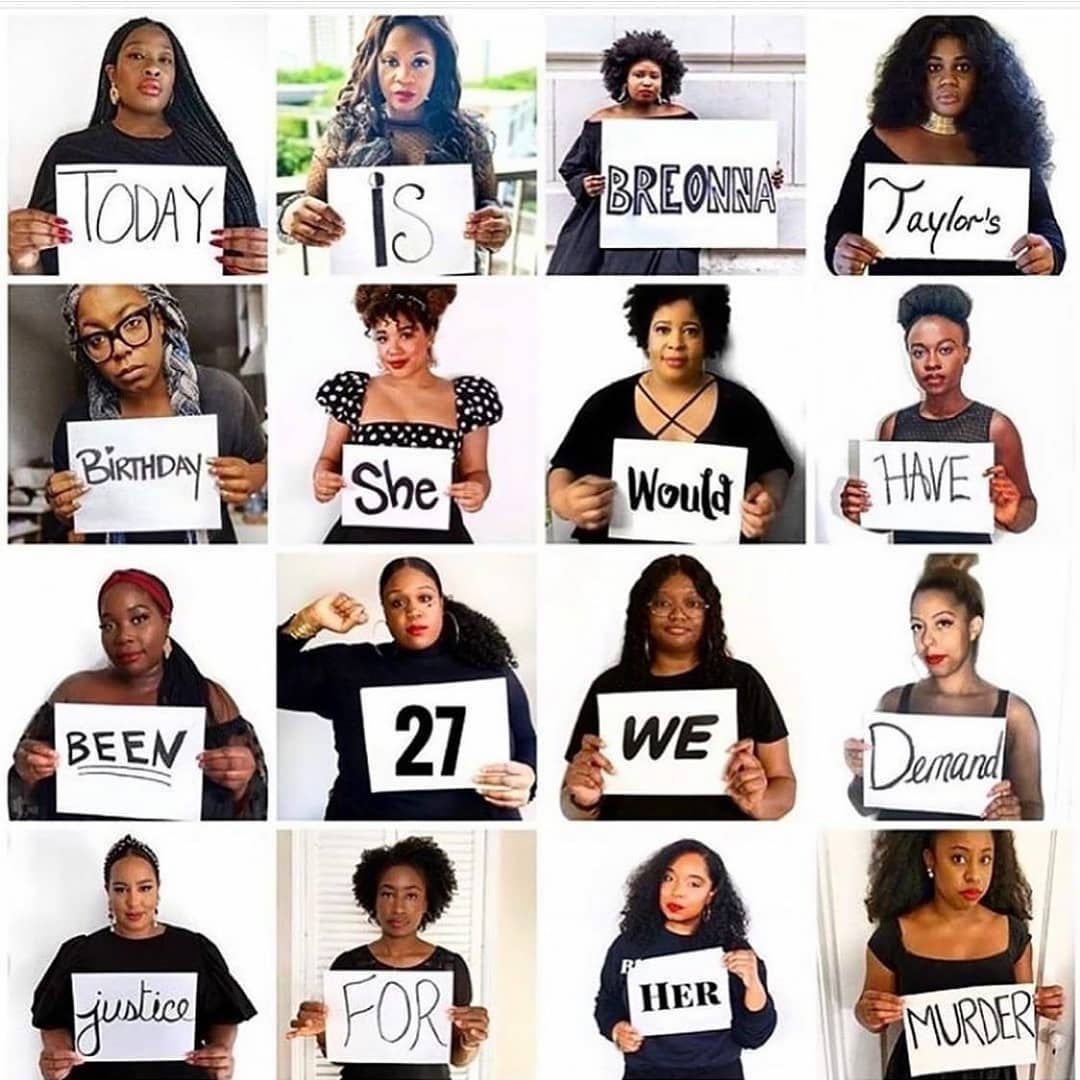 TODAY
iS
BREONNA
Taylor's
BiRTHDAY
She
Would
HAVE
BEEN
27
WE
Demand
justice
FOR
HER
MURDER